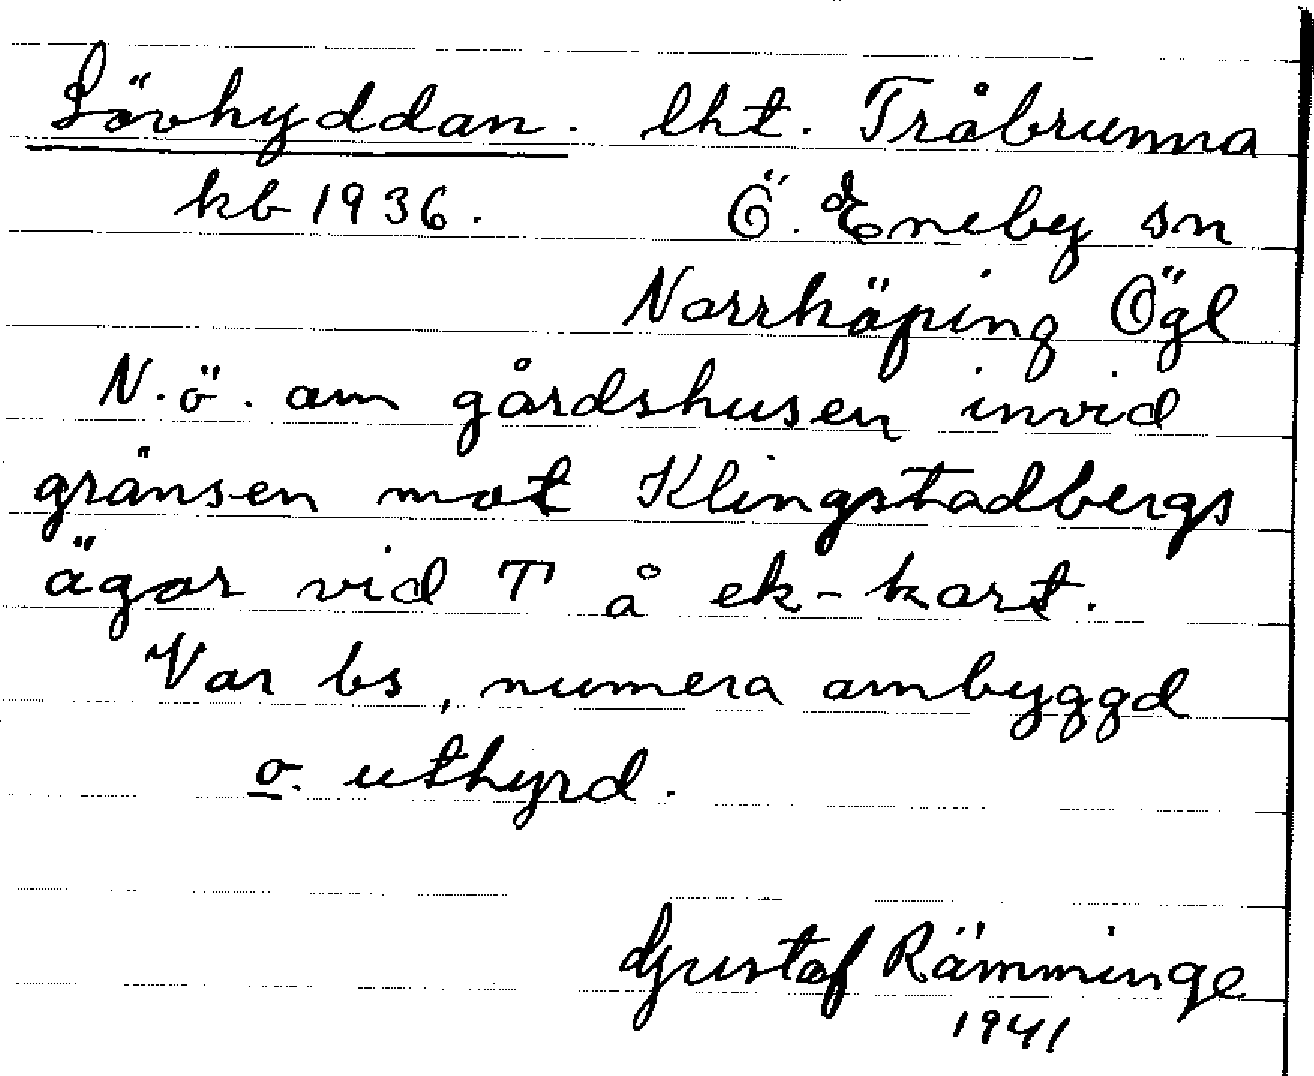 Lövhyddan. lht. Tråbrunna
kb 1936. Ö. Eneby sn
Norrköping Ögl
N.ö. om gårdshusen invid
gränsen mot Klingstadbergs
ägor vid T å ek-kart.
Var bs, numera ombyggd
o. uthyrd.
Gustaf Rämminge
1941